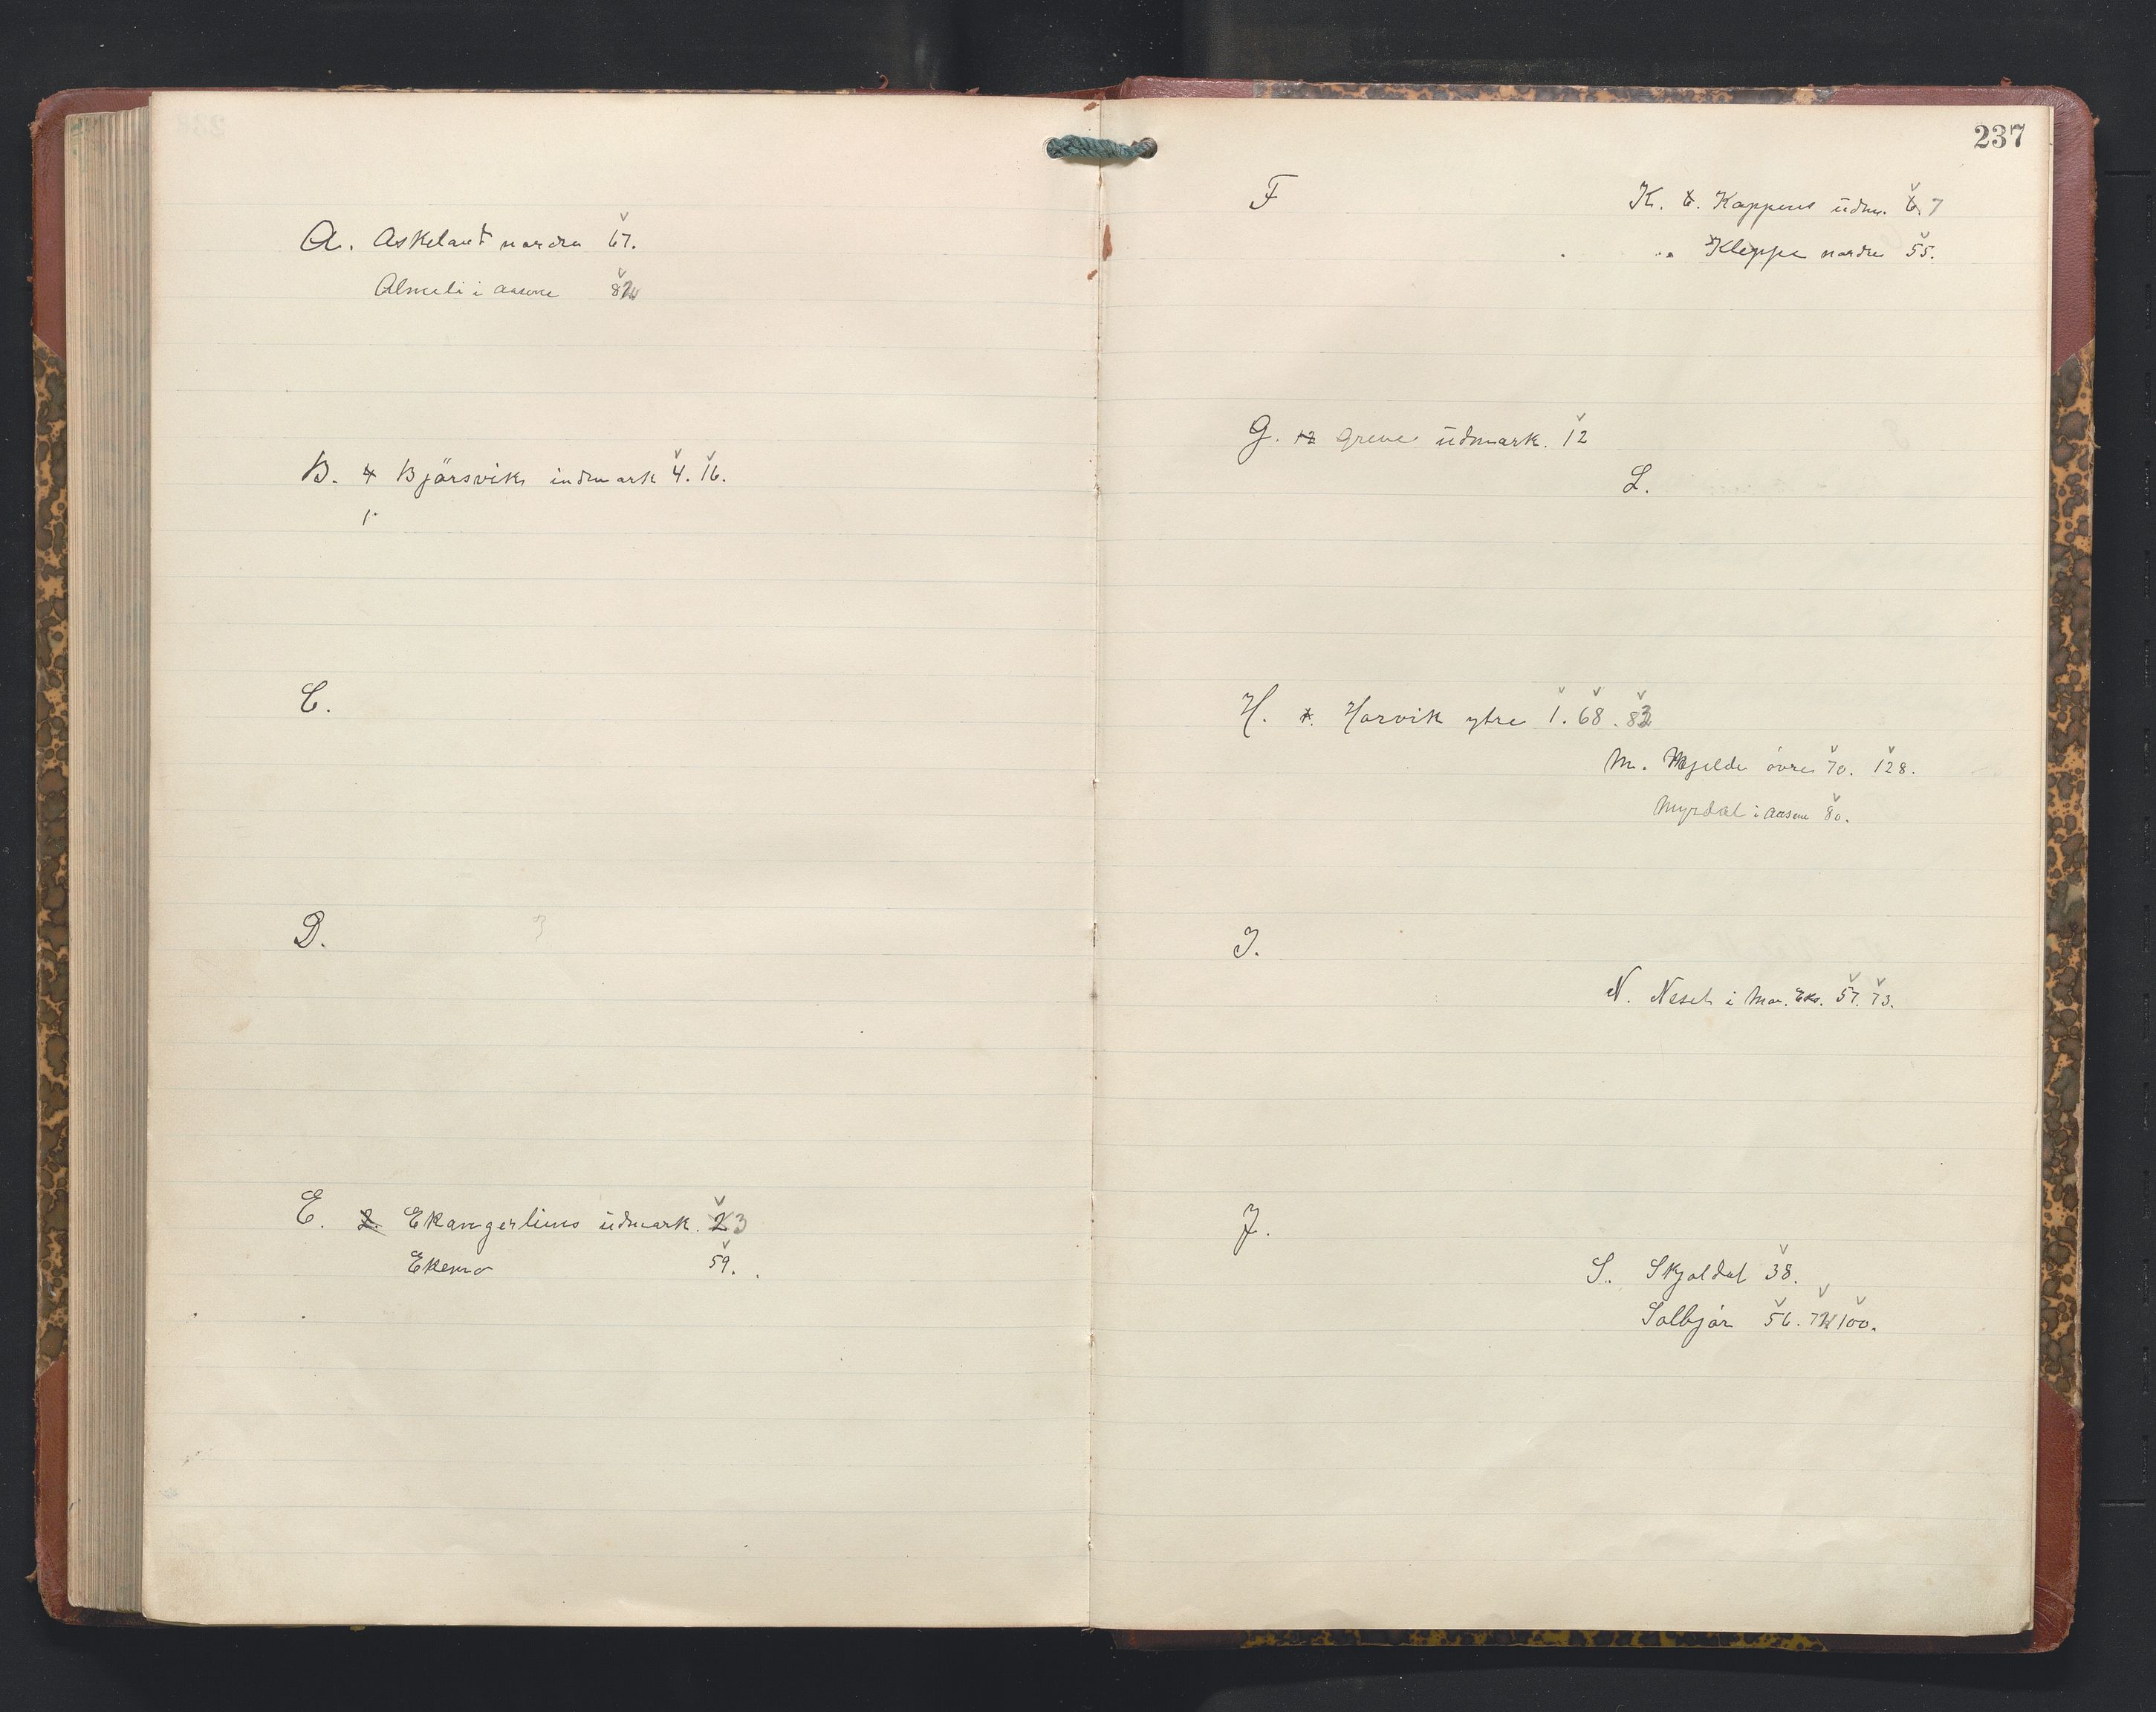 A. Askeland nordre 67.
Almeli i Aasene 82
B. 4 Bjørsviks indmark 4. 16.
1
C.
D.
E. 2. Ekangerliens üdmark. 2 3
Ekemo 59.
237
F
K. 6. Kappens üdm. 6. 7
" Kleppe nordre 55.
G. 12 Greve üdmark. 12
L.
H. 1. Horvik ytre 1. 68. 83
M. Mjelde øvre 70. 128.
Myrdal i Aasene 80.
I.
N. Neset i Mo. Eks. 57. 73.
J.
S. Skjoldal 38.
Solbjør 56. 72 100.